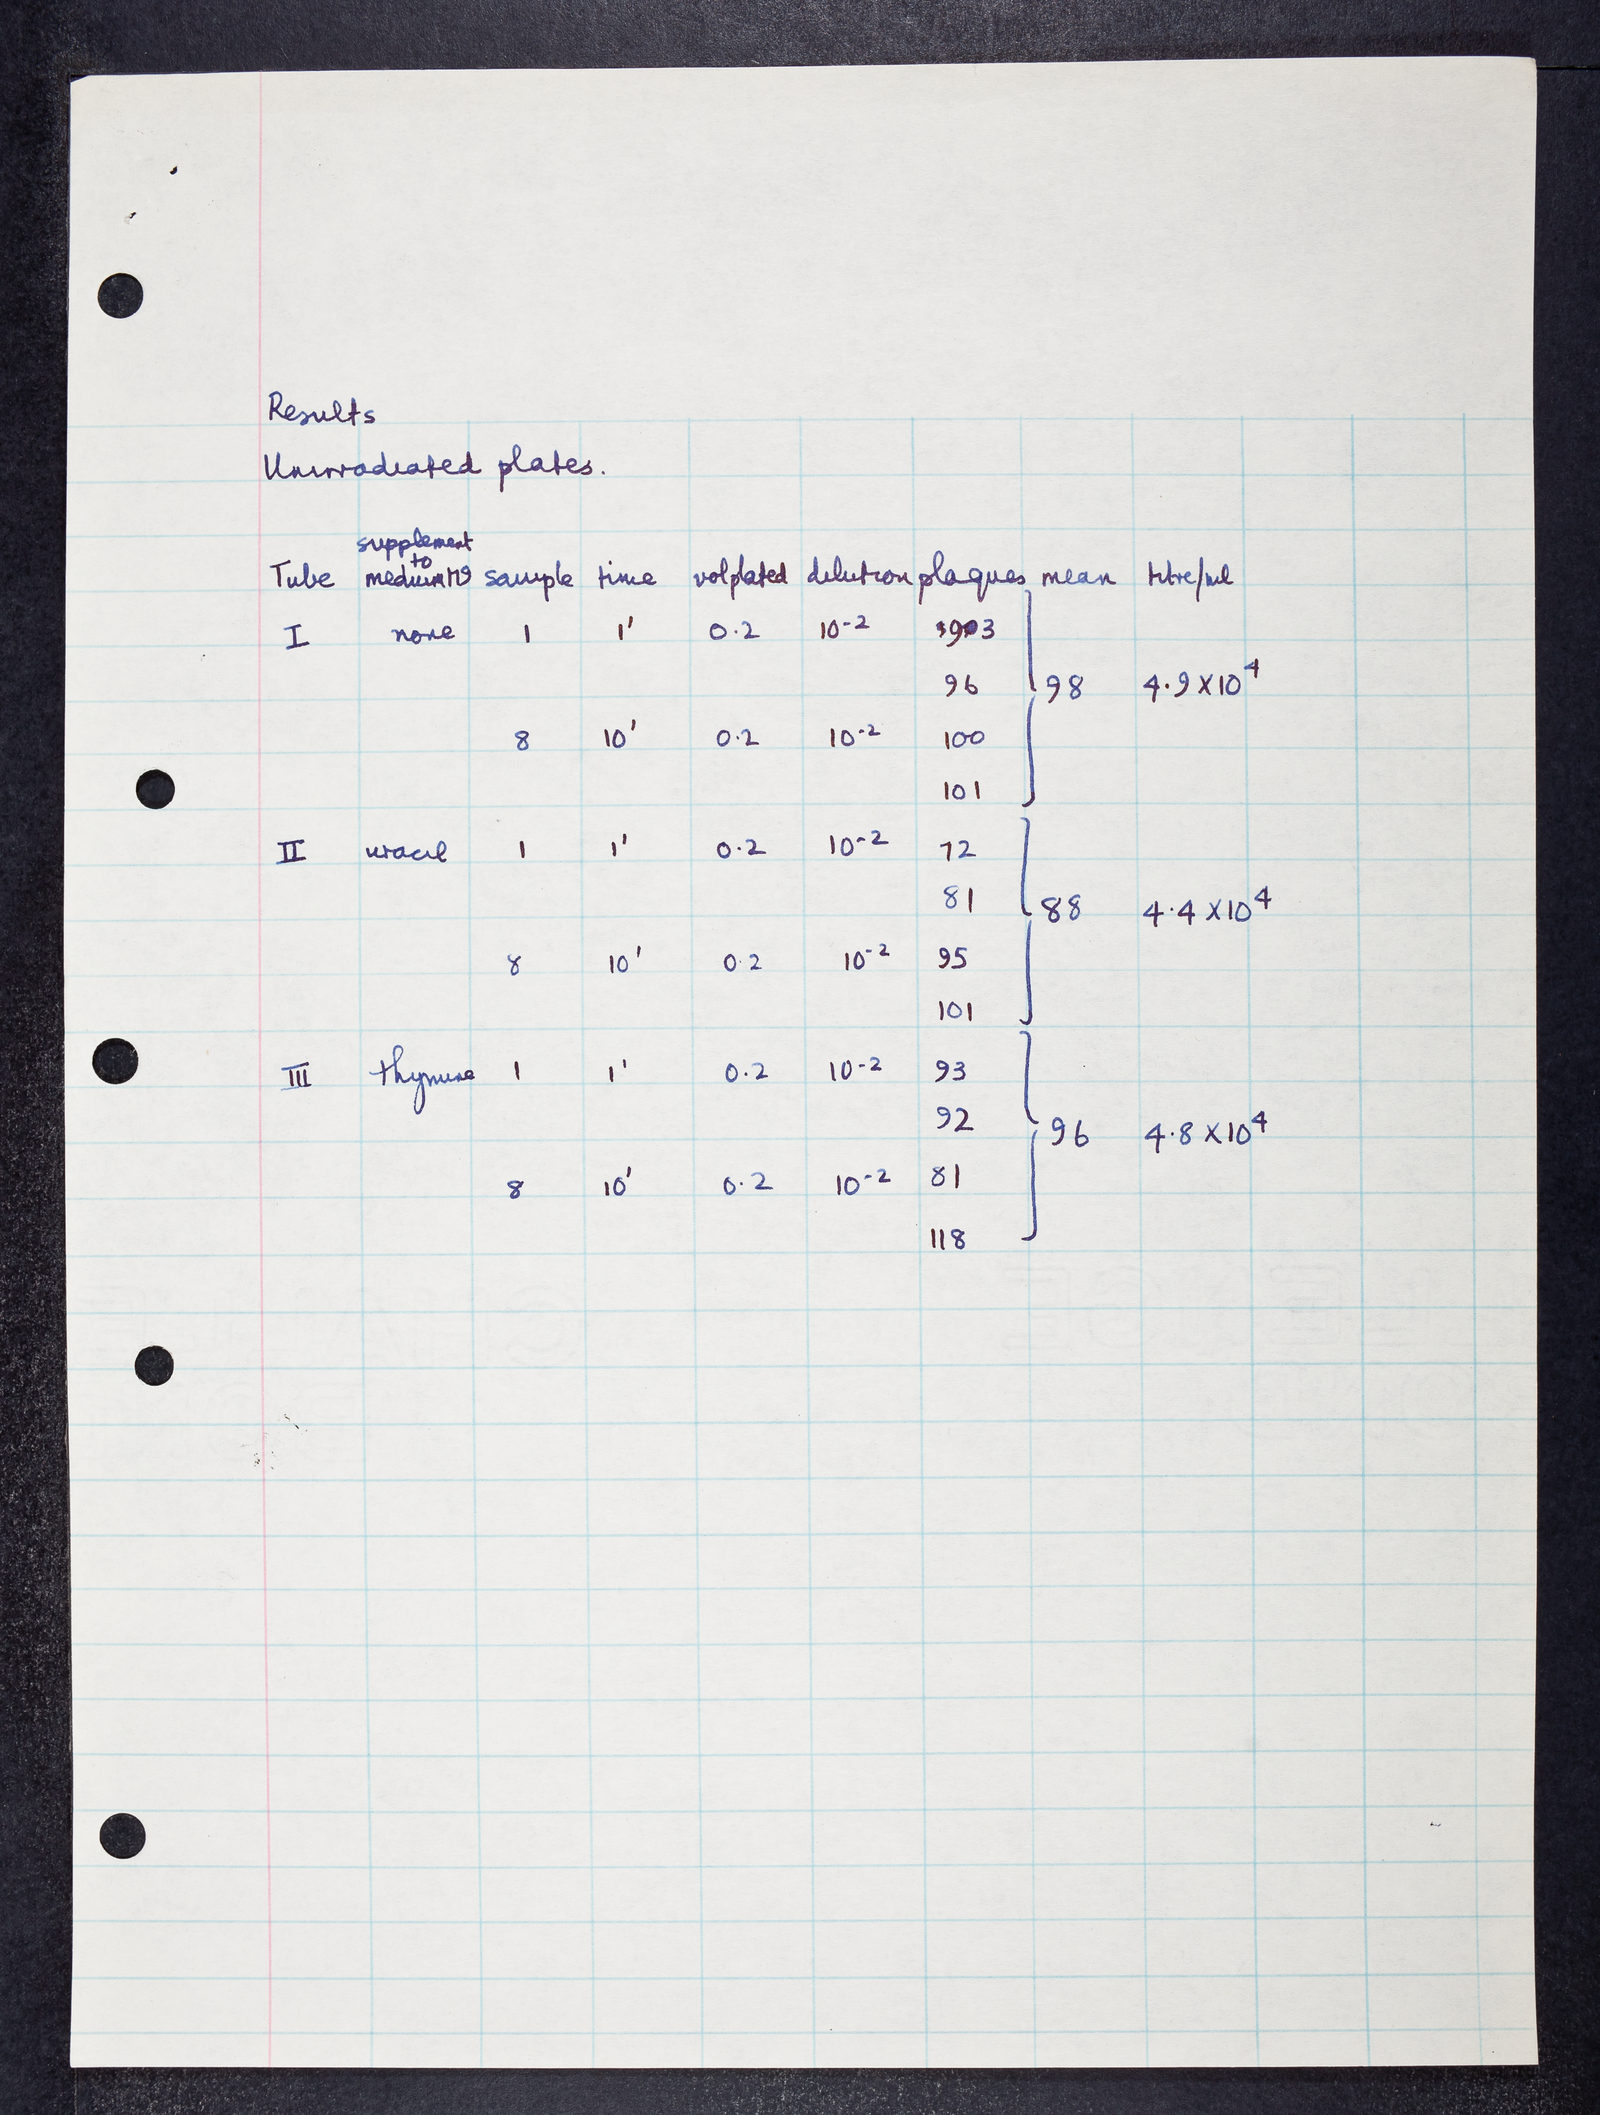 Results
Unirradiated plates.
supplement
to
Tube medium M9 sample time vol plated dilution plaques mean titre/ml
I none 1 1' 0.2 10-2
96 98 4.9 X 10 4
8 10' 0.2 10-2 100
101
II uracil 1 1' 0.2 10-2 72
81 88 4.4 X 10 4
8 10' 0.2 10-2 95
101
III thymine 1 1' 0.2 10-2 93
92 96 4.8 X 10 4
8 10' 0.2 10-2 81
118